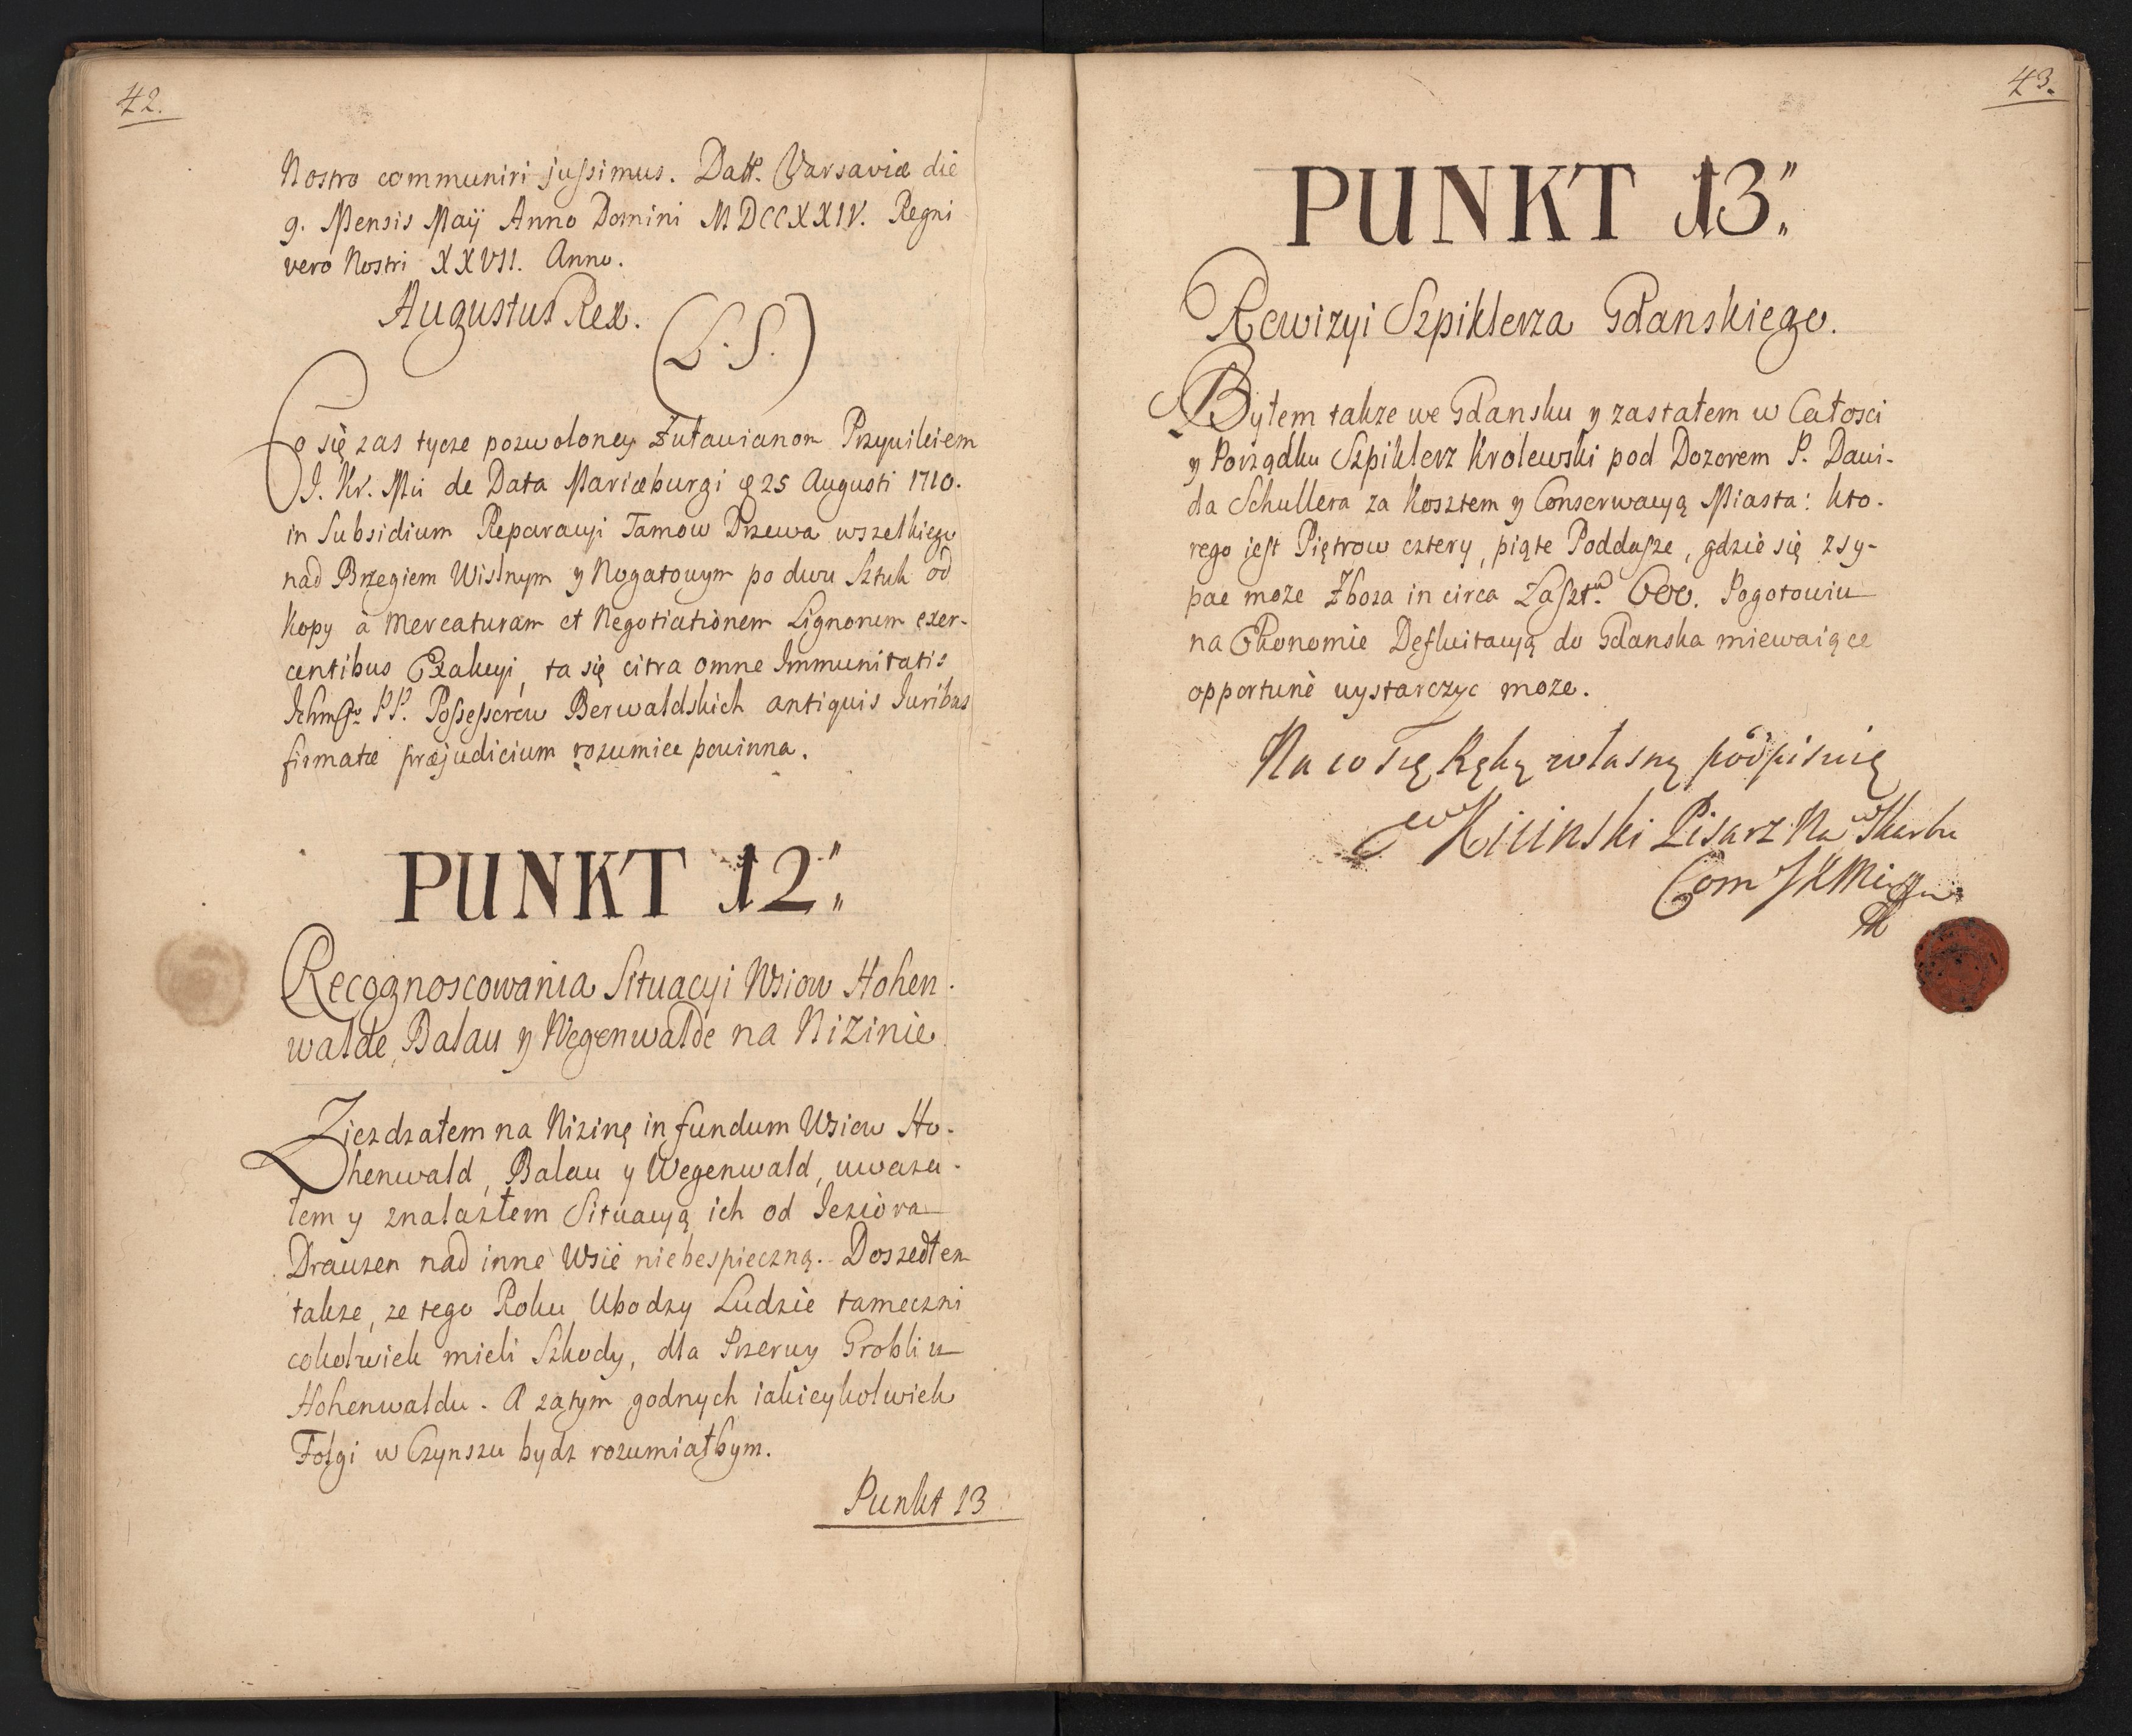 42.
Nostro communiri jussimus. Datt. Varsaviæ die
9. Mensis Maÿ Anno Domini MDCCXXIV. Regni
vero Nostri XXVII. Anno.
Augustus Rex.
(L. S.)
Co się zas tycze pozwoloney Żuławianom Przywileiem
J. Kr. Mci de Data Mariæburgi 25 Augusti 1710.
in Subsidium Reparacyi Tamow Drzewa wszelkiego
nad Brzegiem Wislnym y Nogatowym po dwu Sztuk od
Kopy a Mercaturam et Negotiationem Lignorum exer-
centibus Exakcyi, ta się citra omne Immunitatis
Ichm PP. Possessorow Berwaldskich antiquis Iuribus
firmatæ præjudicium rozumiec powinna.
PUNKT 12.
Recognoscowania Situacyi Wsiow Hohen-
walde, Balau y Wegenwalde na Nizinie
Ziezdzałem na Nizinę in fundum Wsiow Ho-
henwald, Balau y Wegenwald, uwaza-
łem y znalazłem Situacyą ich od Ieziora
Drauzen nad inne Wsie niebespieczną. Doszedłem
takze, ze tego Roku Ubodzy Ludzie tameczni
cokolwiek mieli Szkody, dla Przerwy Grobli w
Hohenwaldu. A zatym godnych iakieykolwiek
Folgi w Czynszu bydz rozumiałbym.
Punkt 13
43.
PUNKT 13.
Rewizyi Szpiklerza Gdanskiego.
Byłem takze we Gdansku y zastałem w Całosci
y Porządku Szpiklerz Krolewski pod Dozorem P. Dawi-
da Schullera za Kosztem y Conserwacyą Miasta: kto-
rego jest Piętrow cztery, piąte Poddasze, gdzie się zsy-
pac moze Zboza in circa Laszt. 600. Pogotowiu
na Ekonomie Defluitacyą do Gdanska miewaiące
opportunè wystarczyc moze.
Na co się Ręką własną podpisuię
Kicinski Pisarz Skarbu
Com JKMci